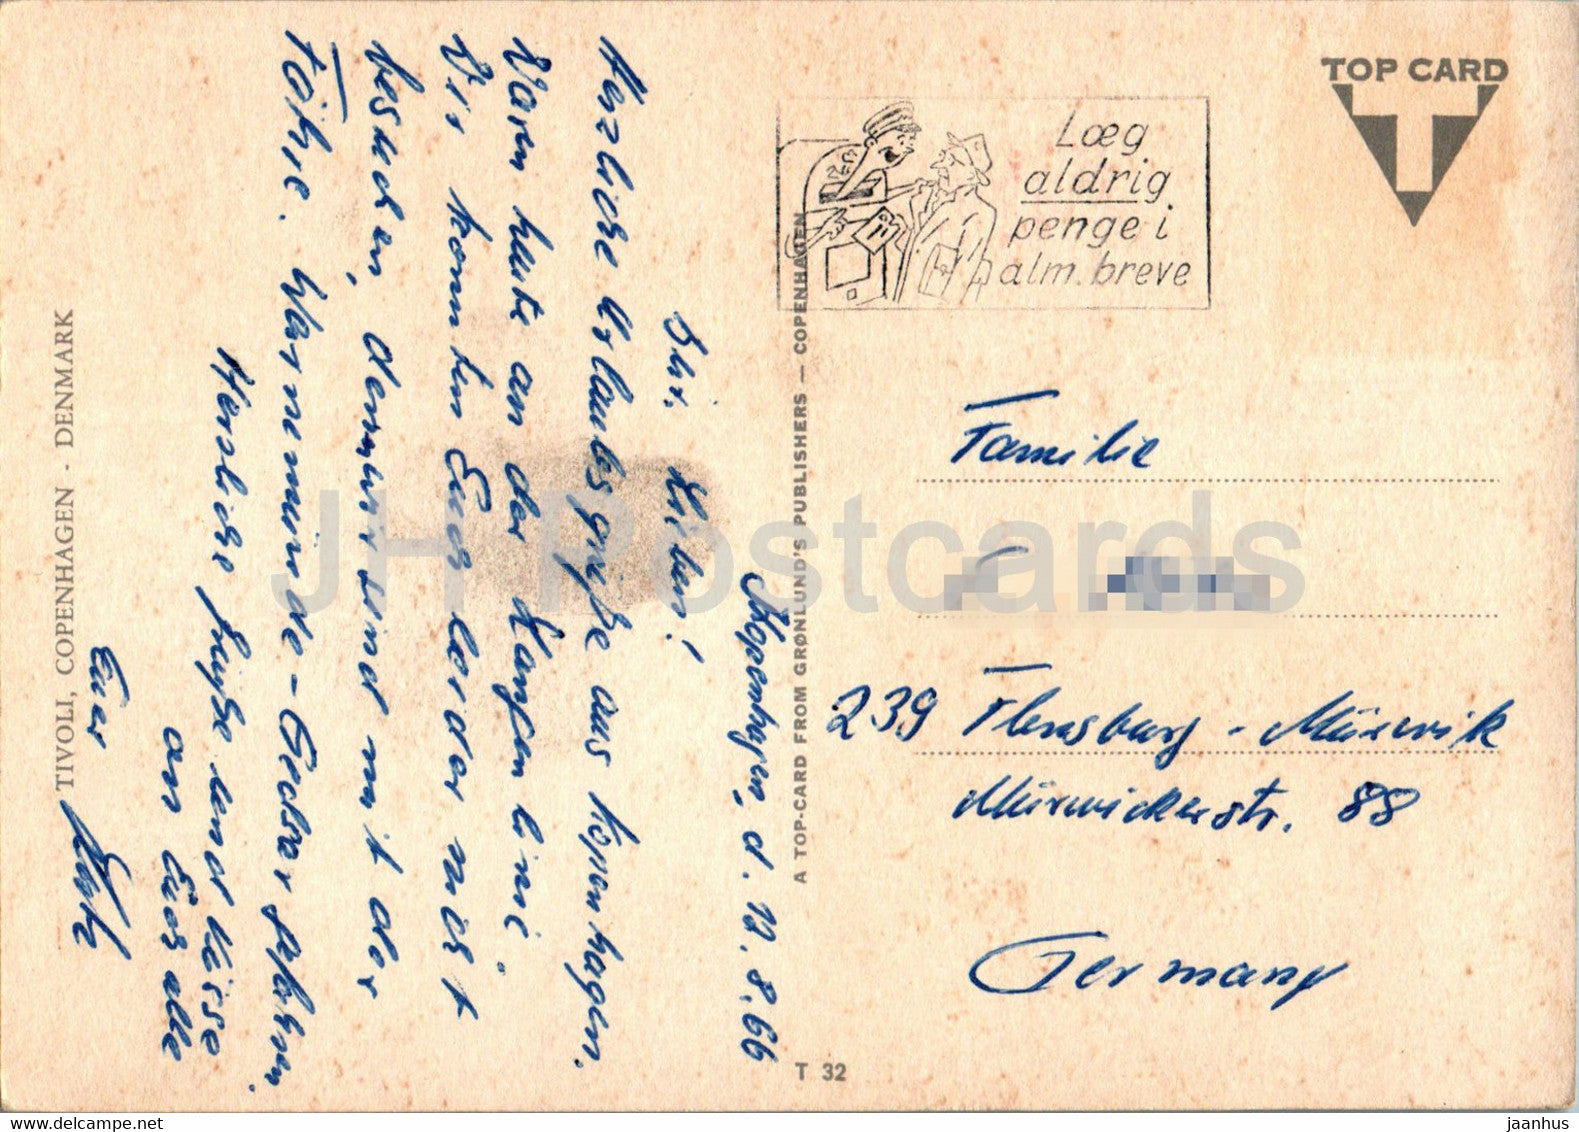 TOP CARD
Læg
aldrig
penge i
alm. breve
TIVOLI, COPENHAGEN - DENMARK
A TOP-CARD FROM GRØNLUND'S PUBLISHERS — COPENHAGEN
T 32
Kopenhagen, d. 12.8.66
Ihr Lieben!
Herzliche Urlaubsgrüße aus Kopenhagen.
Waren heute an der Langen Linie
Wir konnten Euch leider nicht
besuchen, denn wir sind mit der
Fähre Warnemünde - Gedser gefahren.
Herzliche Grüße und Küsse
an Euch alle
Euer
Familie
239 Flensburg - Mürwik
Mürwickerstr. 88
Germany
JH Postcards
HipPostcard.com
jaanhus